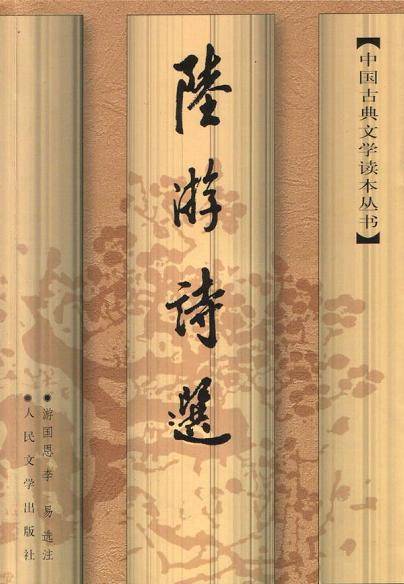 【中国古典文学读本丛书】
陸游詩選
●游国恩 李 易 选注
●人民文学出版社